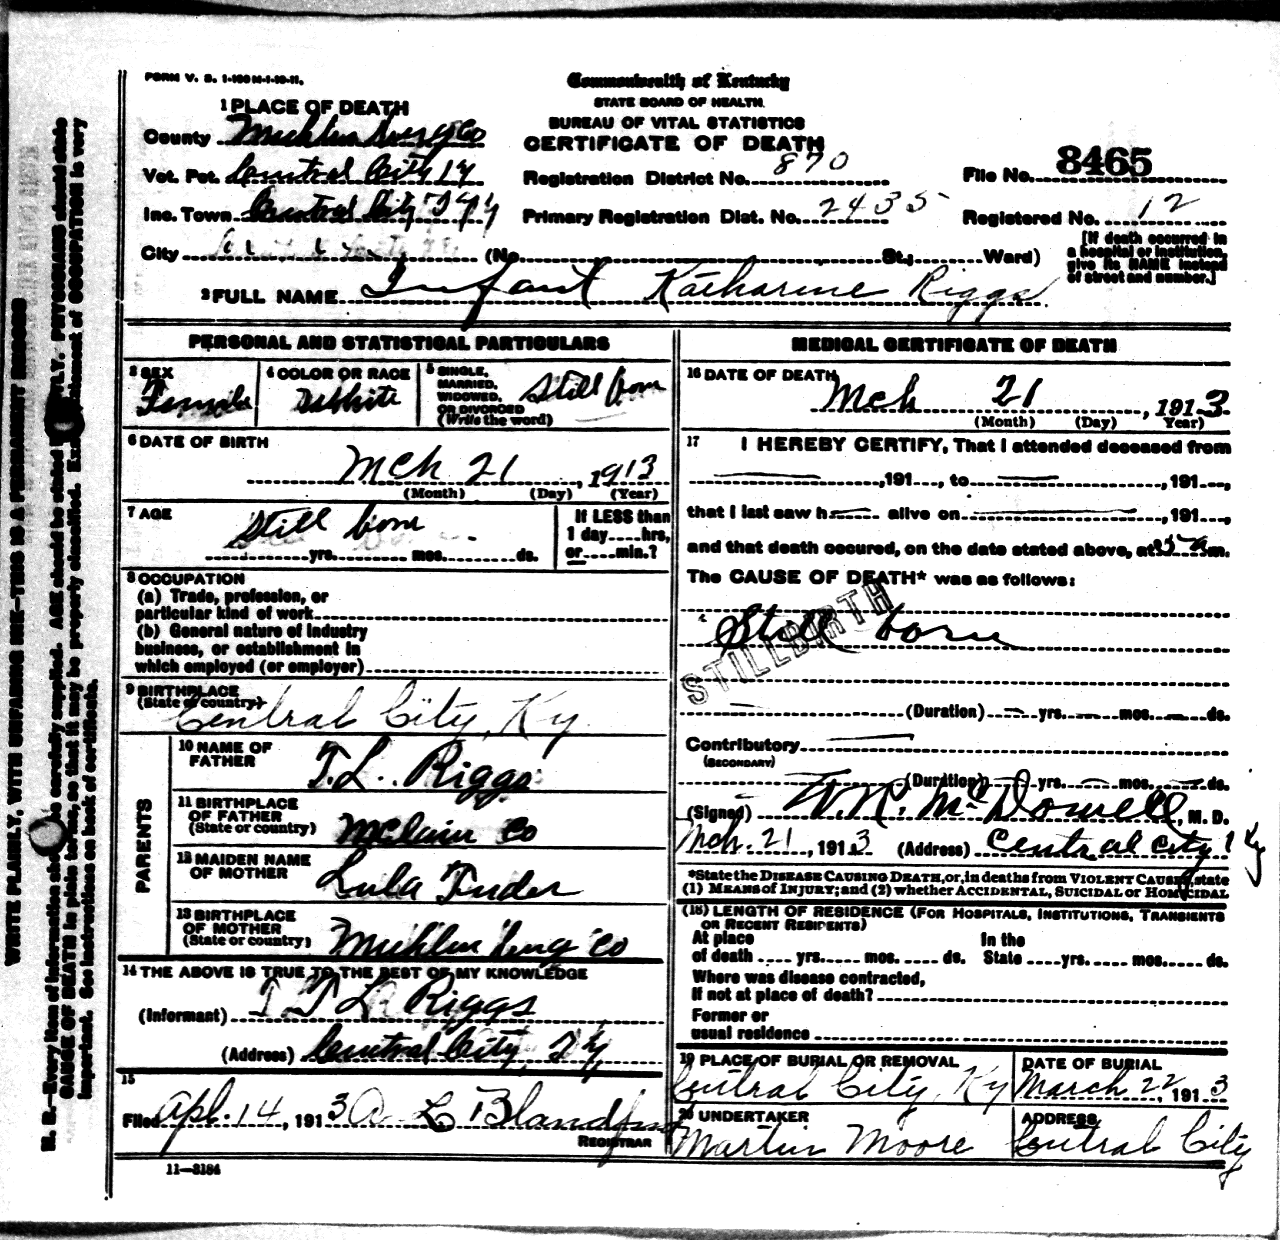 FORM V. S. 1-100M-1-10-11.
Commonwealth of Kentucky
STATE BOARD OF HEALTH.
BUREAU OF VITAL STATISTICS
CERTIFICATE OF DEATH
1 PLACE OF DEATH
County Muhlenberg Co
Vot. Pct. Central City Ky
Inc. Town Central City Ky
City
(No. St.; Ward)
Registration District No. 870
Primary Registration Dist. No. 2435
File No. 8465
Registered No. 12
[If death occurred in
a hospital or institution,
give its NAME instead
of street and number.]
2 FULL NAME Infant Katharine Riggs
PERSONAL AND STATISTICAL PARTICULARS
3 SEX Female
4 COLOR OR RACE White
5 SINGLE, MARRIED, WIDOWED, OR DIVORCED (Write the word) Still born
6 DATE OF BIRTH
Mch 21, 1913
(Month) (Day) (Year)
7 AGE Still born
yrs. mos. ds.
If LESS than
1 day hrs,
or min.?
8 OCCUPATION
(a) Trade, profession, or
particular kind of work
(b) General nature of industry
business, or establishment in
which employed (or employer)
9 BIRTHPLACE
(State or country)
Central City, Ky.
PARENTS
10 NAME OF FATHER T. L. Riggs
11 BIRTHPLACE OF FATHER (State or country) McLain Co
12 MAIDEN NAME OF MOTHER Lula Tuder
13 BIRTHPLACE OF MOTHER (State or country) Muhlenberg Co
14 THE ABOVE IS TRUE TO THE BEST OF MY KNOWLEDGE
(Informant) T L Riggs
(Address) Central City, Ky
15
Filed Apl. 14, 1913 L Blandford
REGISTRAR
11—3184
MEDICAL CERTIFICATE OF DEATH
16 DATE OF DEATH
Mch 21, 1913
(Month) (Day) Year)
17 I HEREBY CERTIFY, That I attended deceased from
, 191 , to , 191 ,
that I last saw h alive on , 191 ,
and that death occured, on the date stated above, at m.
The CAUSE OF DEATH* was as follows:
Still born
STILLBIRTH
(Duration) yrs. mos. ds.
Contributory
(SECONDARY)
(Duration) yrs. mos. ds.
(Signed) W.R. McDowell, M. D.
Mch. 21, 1913 (Address) Central City Ky
*State the DISEASE CAUSING DEATH, or, in deaths from VIOLENT CAUSES, state
(1) MEANS of INJURY; and (2) whether ACCIDENTAL, SUICIDAL or HOMICIDAL
(18) LENGTH OF RESIDENCE (FOR HOSPITALS, INSTITUTIONS, TRANSIENTS
OR RECENT RESIDENTS)
At place In the
of death yrs. mos. ds. State yrs. mos. ds.
Where was disease contracted,
If not at place of death?
Former or
usual residence
19 PLACE OF BURIAL OR REMOVAL
Central City, Ky
DATE OF BURIAL
March 22, 1913
20 UNDERTAKER
Martin Moore
ADDRESS
Central City
WRITE PLAINLY, WITH UNFADING INK—THIS IS A PERMANENT RECORD
N. B.—Every item of information should be carefully supplied. AGE should be stated EXACTLY. PHYSICIANS should state
CAUSE OF DEATH in plain terms, so that it may be properly classified. Exact statement of OCCUPATION is very
important. See instructions on back of certificate.